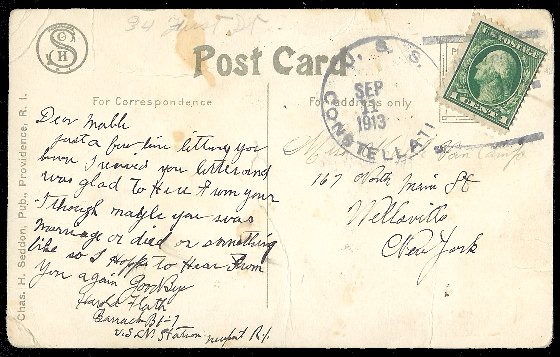 34 First St
Post Card
For Correspondence
For address only
U. S. S.
SEP
11
1913
CONSTELLATI
U.S. POSTAGE
Chas. H. Seddon, Pub., Providence, R. I.
Dear Mable
just a few line letting you
know I received you letter and
was glad to Here from your
I though mabye you was
marriage or died or something
like so I Hopp to Hear From
You again Good Bye
Harold
Barrack B
U.S.N. Station newport R.I.
Miss
167 North Main St
Wellsville
New York